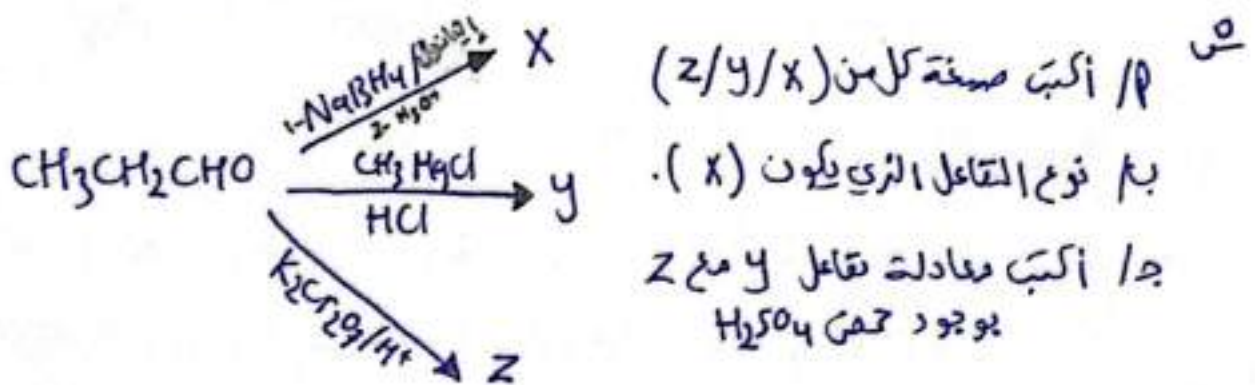 س
أ/ أكتب صيغة كل من (Z/Y/X)
ب/ نوع التفاعل الذي يكون (X).
ج/ أكتب معادلة تفاعل Y مع Z
بوجود حمض H₂SO₄
1-NaBH₄/
2- H₃O⁺
X
CH₃CH₂CHO
CH₃MgCl
HCl
Y
K₂Cr₂O₇/H⁺
Z